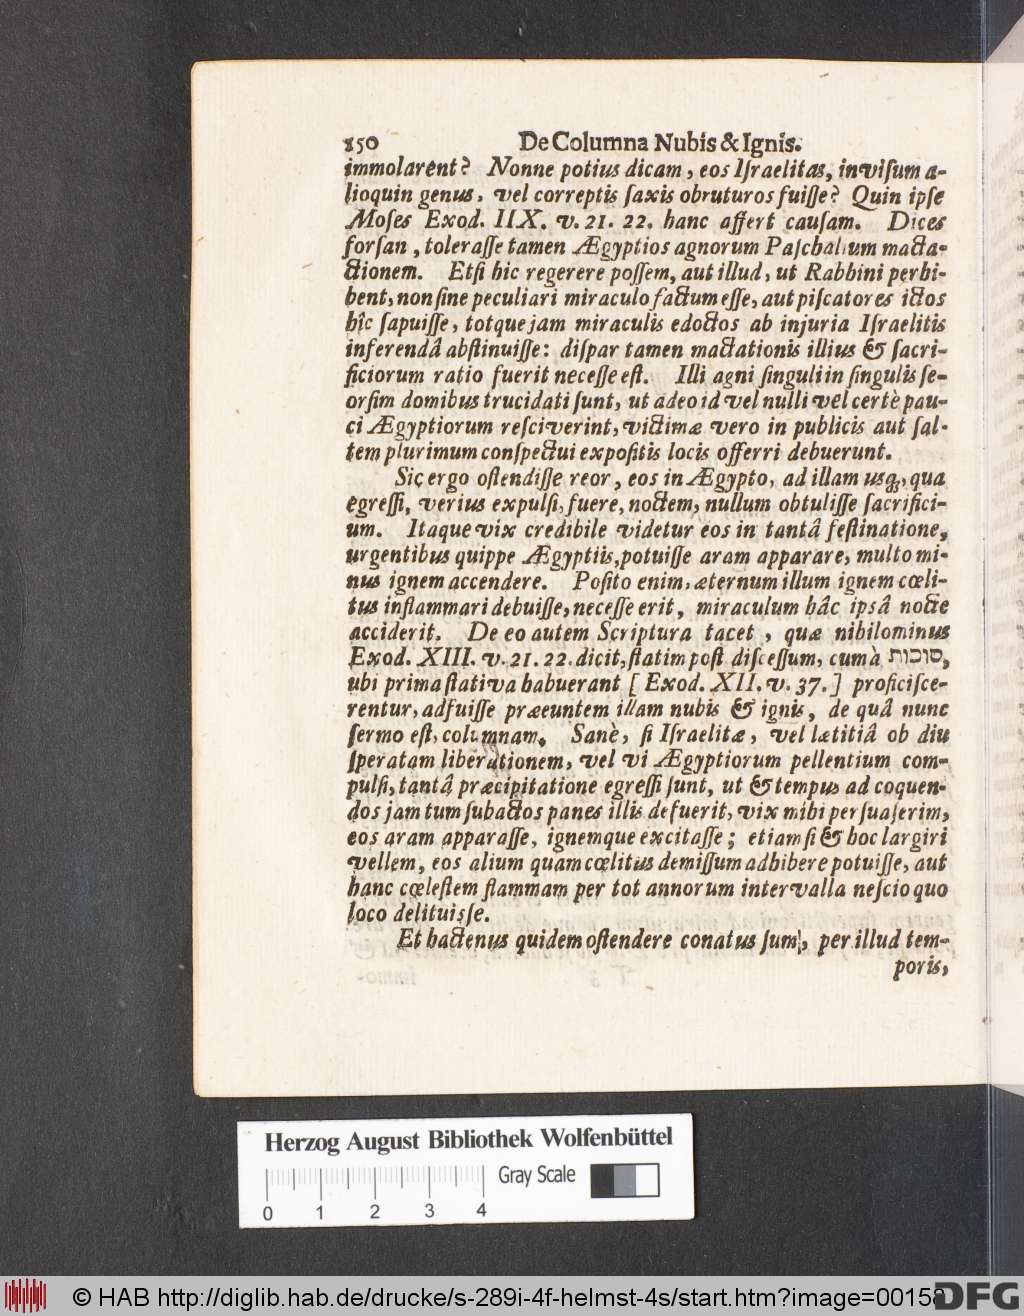 150 De Columna Nubis & Ignis.
immolarent? Nonne potius dicam, eos Iſraelitas, inviſum a-
lioquin genus, vel correptis ſaxis obruturos fuiſſe? Quin ipſe
Moſes Exod. IIX. v. 21. 22. hanc affert cauſam. Dices
forſan, toleraſſe tamen Ægyptios agnorum Paſchalium macta-
ctionem. Etſi hic regerere poſſem, aut illud, ut Rabbini perhi-
bent, non ſine peculiari miraculo factum eſſe, aut piſcatores ictos
hîc ſapuiſſe, totque jam miraculis edoctos ab injuria Iſraelitis
inferendâ abſtinuiſſe: diſpar tamen mactationis illius & ſacri-
ficiorum ratio fuerit neceſſe eſt. Illi agni ſinguli in ſingulis ſe-
orſim domibus trucidati ſunt, ut adeo id vel nulli vel certè pau-
ci Ægyptiorum reſciverint, victimæ vero in publicis aut ſal-
tem plurimum conſpectui expoſitis locis offerri debuerunt.
Sic ergo oſtendiſſe reor, eos in Ægypto, ad illam usq;, qua
egreſſi, verius expulſi, fuere, noctem, nullum obtuliſſe ſacrifici-
um. Itaque vix credibile videtur eos in tantâ feſtinatione,
urgentibus quippe Ægyptiis, potuiſſe aram apparare, multo mi-
nus ignem accendere. Poſito enim, æternum illum ignem cœli-
tus inflammari debuiſſe, neceſſe erit, miraculum hâc ipsâ nocte
acciderit. De eo autem Scriptura tacet, quæ nihilominus
Exod. XIII. v. 21. 22. dicit, ſtatim poſt diſceſſum, cum à סוכות,
ubi prima ſtativa habuerant [Exod. XII. v. 37.] proficiſce-
rentur, adfuiſſe præeuntem illam nubis & ignis, de quâ nunc
ſermo eſt, columnam. Sanè, ſi Iſraelitæ, vel lætitiâ ob diu
ſperatam liberationem, vel vi Ægyptiorum pellentium com-
pulſi, tantâ præcipitatione egreſſi ſunt, ut & tempus ad coquen-
dos jam tum ſubactos panes illis defuerit, vix mihi perſuaſerim,
eos aram apparaſſe, ignemque excitaſſe; etiamſi & hoc largiri
vellem, eos alium quam cœlitus demiſſum adhibere potuiſſe, aut
hanc cœleſtem flammam per tot annorum intervalla neſcio quo
loco delituisſe.
Et hactenus quidem oſtendere conatus ſum, per illud tem-
poris,
Herzog August Bibliothek Wolfenbüttel
Gray Scale
0 1 2 3 4
© HAB http://diglib.hab.de/drucke/s-289i-4f-helmst-4s/start.htm?image=00158
DFG